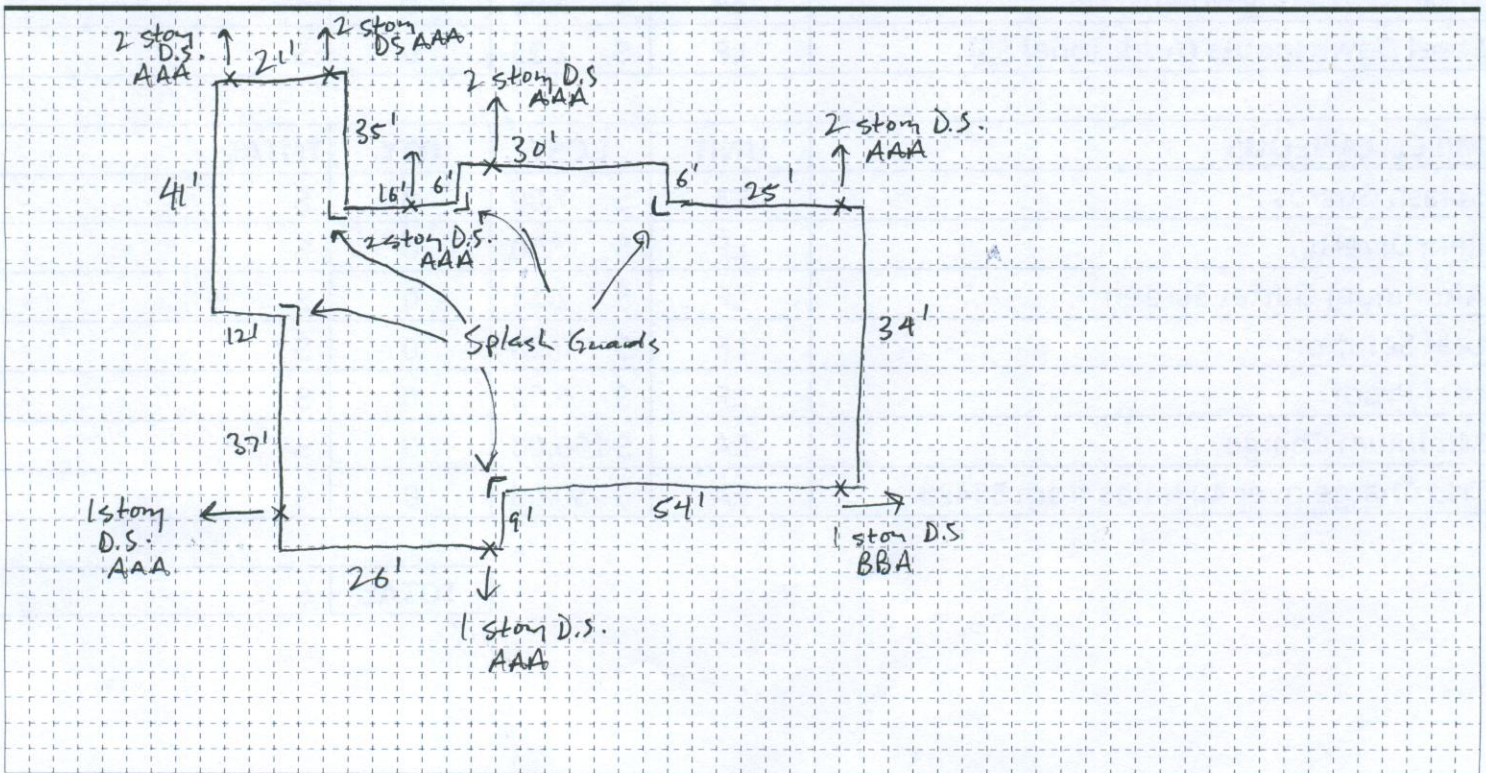 2 story
D.S.
AAA
21'
2 story
DS AAA
2 story D.S
AAA
2 story D.S.
AAA
35'
30'
41'
16'
6'
6'
25'
2 story D.S.
AAA
12'
Splash Guards
34'
37'
1 story
D.S.
AAA
9'
54'
1 story D.S
BBA
26'
1 story D.S.
AAA